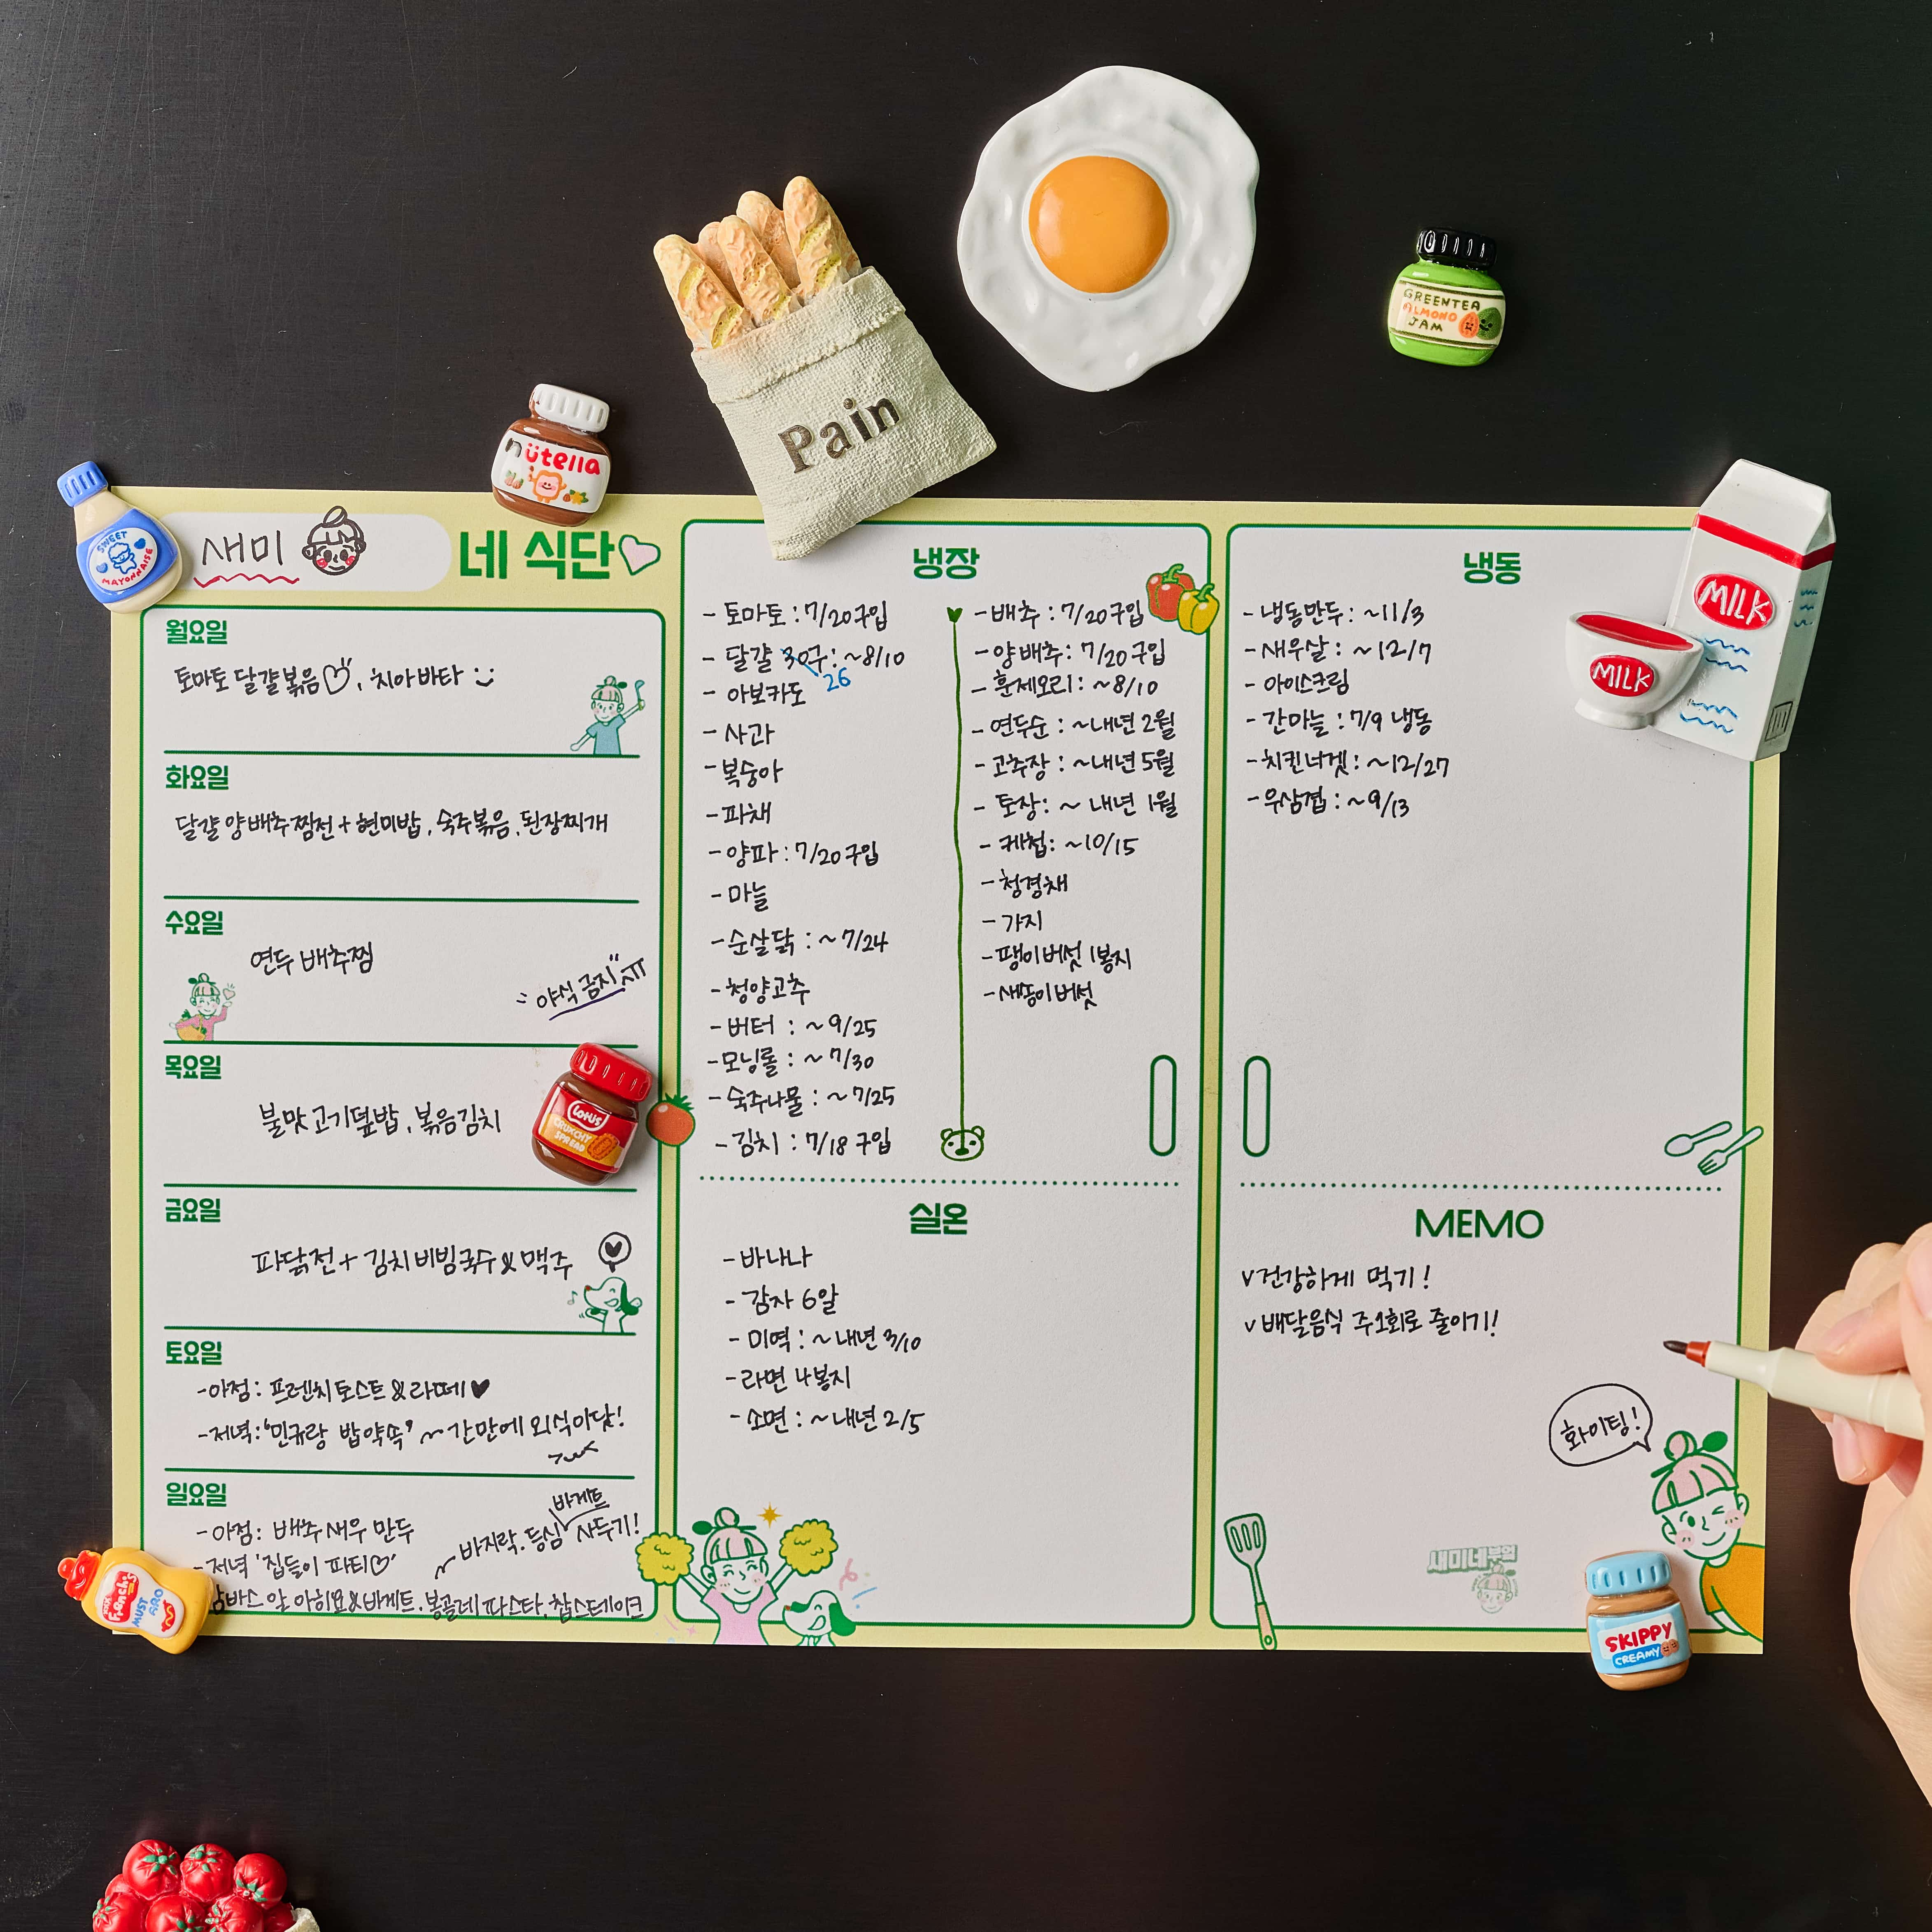 Pain
GREENTEA
ALMOND
JAM
nütella
SWEET
MAYONNAISE
MILK
MILK
새미
네 식단
월요일
토마토 달걀볶음♡, 치아바타
화요일
달걀 양배추찜전 + 현미밥, 숙주볶음, 된장찌개
수요일
연두 배추찜
야식 금지!! ㅠㅠ
목요일
불맛 고기덮밥, 볶음김치
LOTUS
CRUNCHY
SPREAD
금요일
파닭전 + 김치비빔국수 & 맥주
토요일
-아점: 프렌치토스트 & 라떼♥
-저녁: '민규랑 밥약속' ~ 간만에 외식이닷!
일요일
-아점: 배추새우 만두
바게트
~ 바지락, 등심 사두기!
-저녁 '집들이 파티♡'
감바스 알 아히요&바게트, 봉골레파스타, 찹스테이크
French's
MUSTARD
냉장
- 토마토 : 7/20구입
- 달걀 30구 : ~8/10
26
- 아보카도
- 사과
- 복숭아
- 파채
- 양파 : 7/20구입
- 마늘
- 순살닭 : ~7/24
- 청양고추
- 버터 : ~9/25
- 모닝롤 : ~7/30
- 숙주나물 : ~7/25
- 김치 : 7/18 구입
- 배추 : 7/20구입
- 양배추 : 7/20구입
- 훈제오리 : ~8/10
- 연두순 : ~내년 2월
- 고추장 : ~내년 5월
- 토장 : ~ 내년 1월
- 케첩 : ~10/15
- 청경채
- 가지
- 팽이버섯 1봉지
- 새송이버섯
실온
- 바나나
- 감자 6알
- 미역 : ~내년 3/10
- 라면 4봉지
- 소면 : ~내년 2/5
냉동
- 냉동만두 : ~11/3
- 새우살 : ~12/7
- 아이스크림
- 간마늘 : 7/9 냉동
- 치킨너겟 : ~12/27
- 우삼겹 : ~9/13
MEMO
v 건강하게 먹기!
v 배달음식 주1회로 줄이기!
화이팅!
새미네부엌
SKIPPY
CREAMY